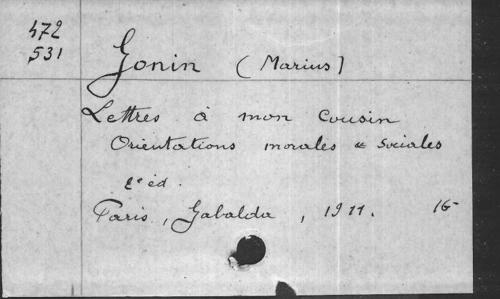 472
531
Gonin (Marius)
Lettres à mon Cousin
Orientations morales & sociales
2e éd.
Paris, Gabalda, 1911. 16-